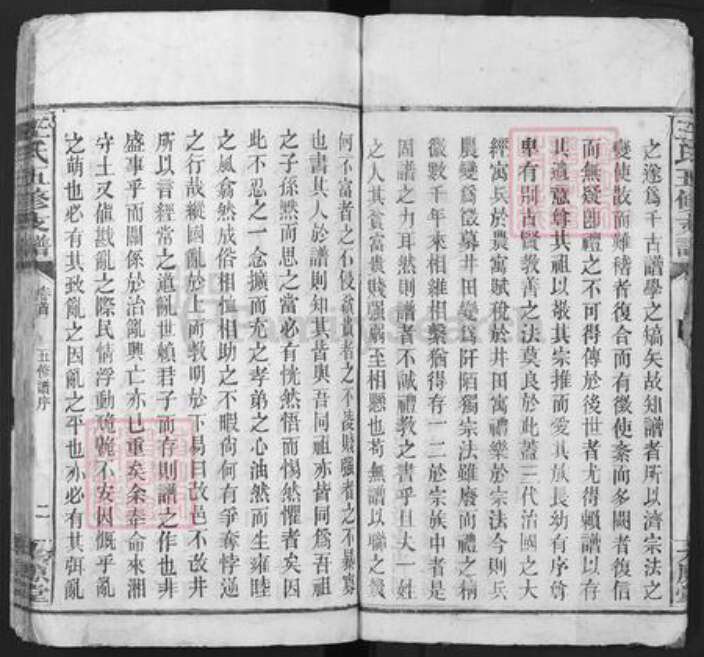 之遂爲千古譜學之矯矢故知譜者所以濟宗法之
變使散而難稽者復合而有徵使紊而多闕者復信
而無疑卽禮之不可得傳於後世者尤得賴譜以存
其遺意尊其祖以敬其宗推而愛其族長幼有序尊
卑有別古賢敎善之法莫良於此蓋三代治國之大
經寓兵於農寓賦稅於井田寓禮樂於宗法今則兵
農變爲徵募井田變爲阡陌獨宗法雖廢而禮之精
微數千年來相維相繫猶得有一二於宗族中者是
固譜之力耳然則譜者不誠禮敎之書乎且夫一姓
之人其貧富貴賤强弱至相懸也苟無譜以聯之幾
何不富者之不侵貧貴者之不凌賤强者之不暴寡
也書其人於譜則知其皆與吾同祖亦皆同爲吾祖
之子孫黙而思之當必有恍然悟而惕然懼者矣因
此不忍之一念擴而充之孝弟之心油然而生雍睦
之風翕然成俗相恤相助之不暇尙何有爭奪悖逆
之行哉縱國亂於上而敎明於下易曰改邑不改井
所以言經常之道亂世賴君子而存則譜之作也非
盛事乎而關係於治亂興亡亦已重矣余奉命來湘
守土又値戡亂之際民情浮動
不安因慨乎亂
之萌也必有其致亂之因亂之平也亦必有其弭亂
王氏五修支譜
五修譜序
二
原堂